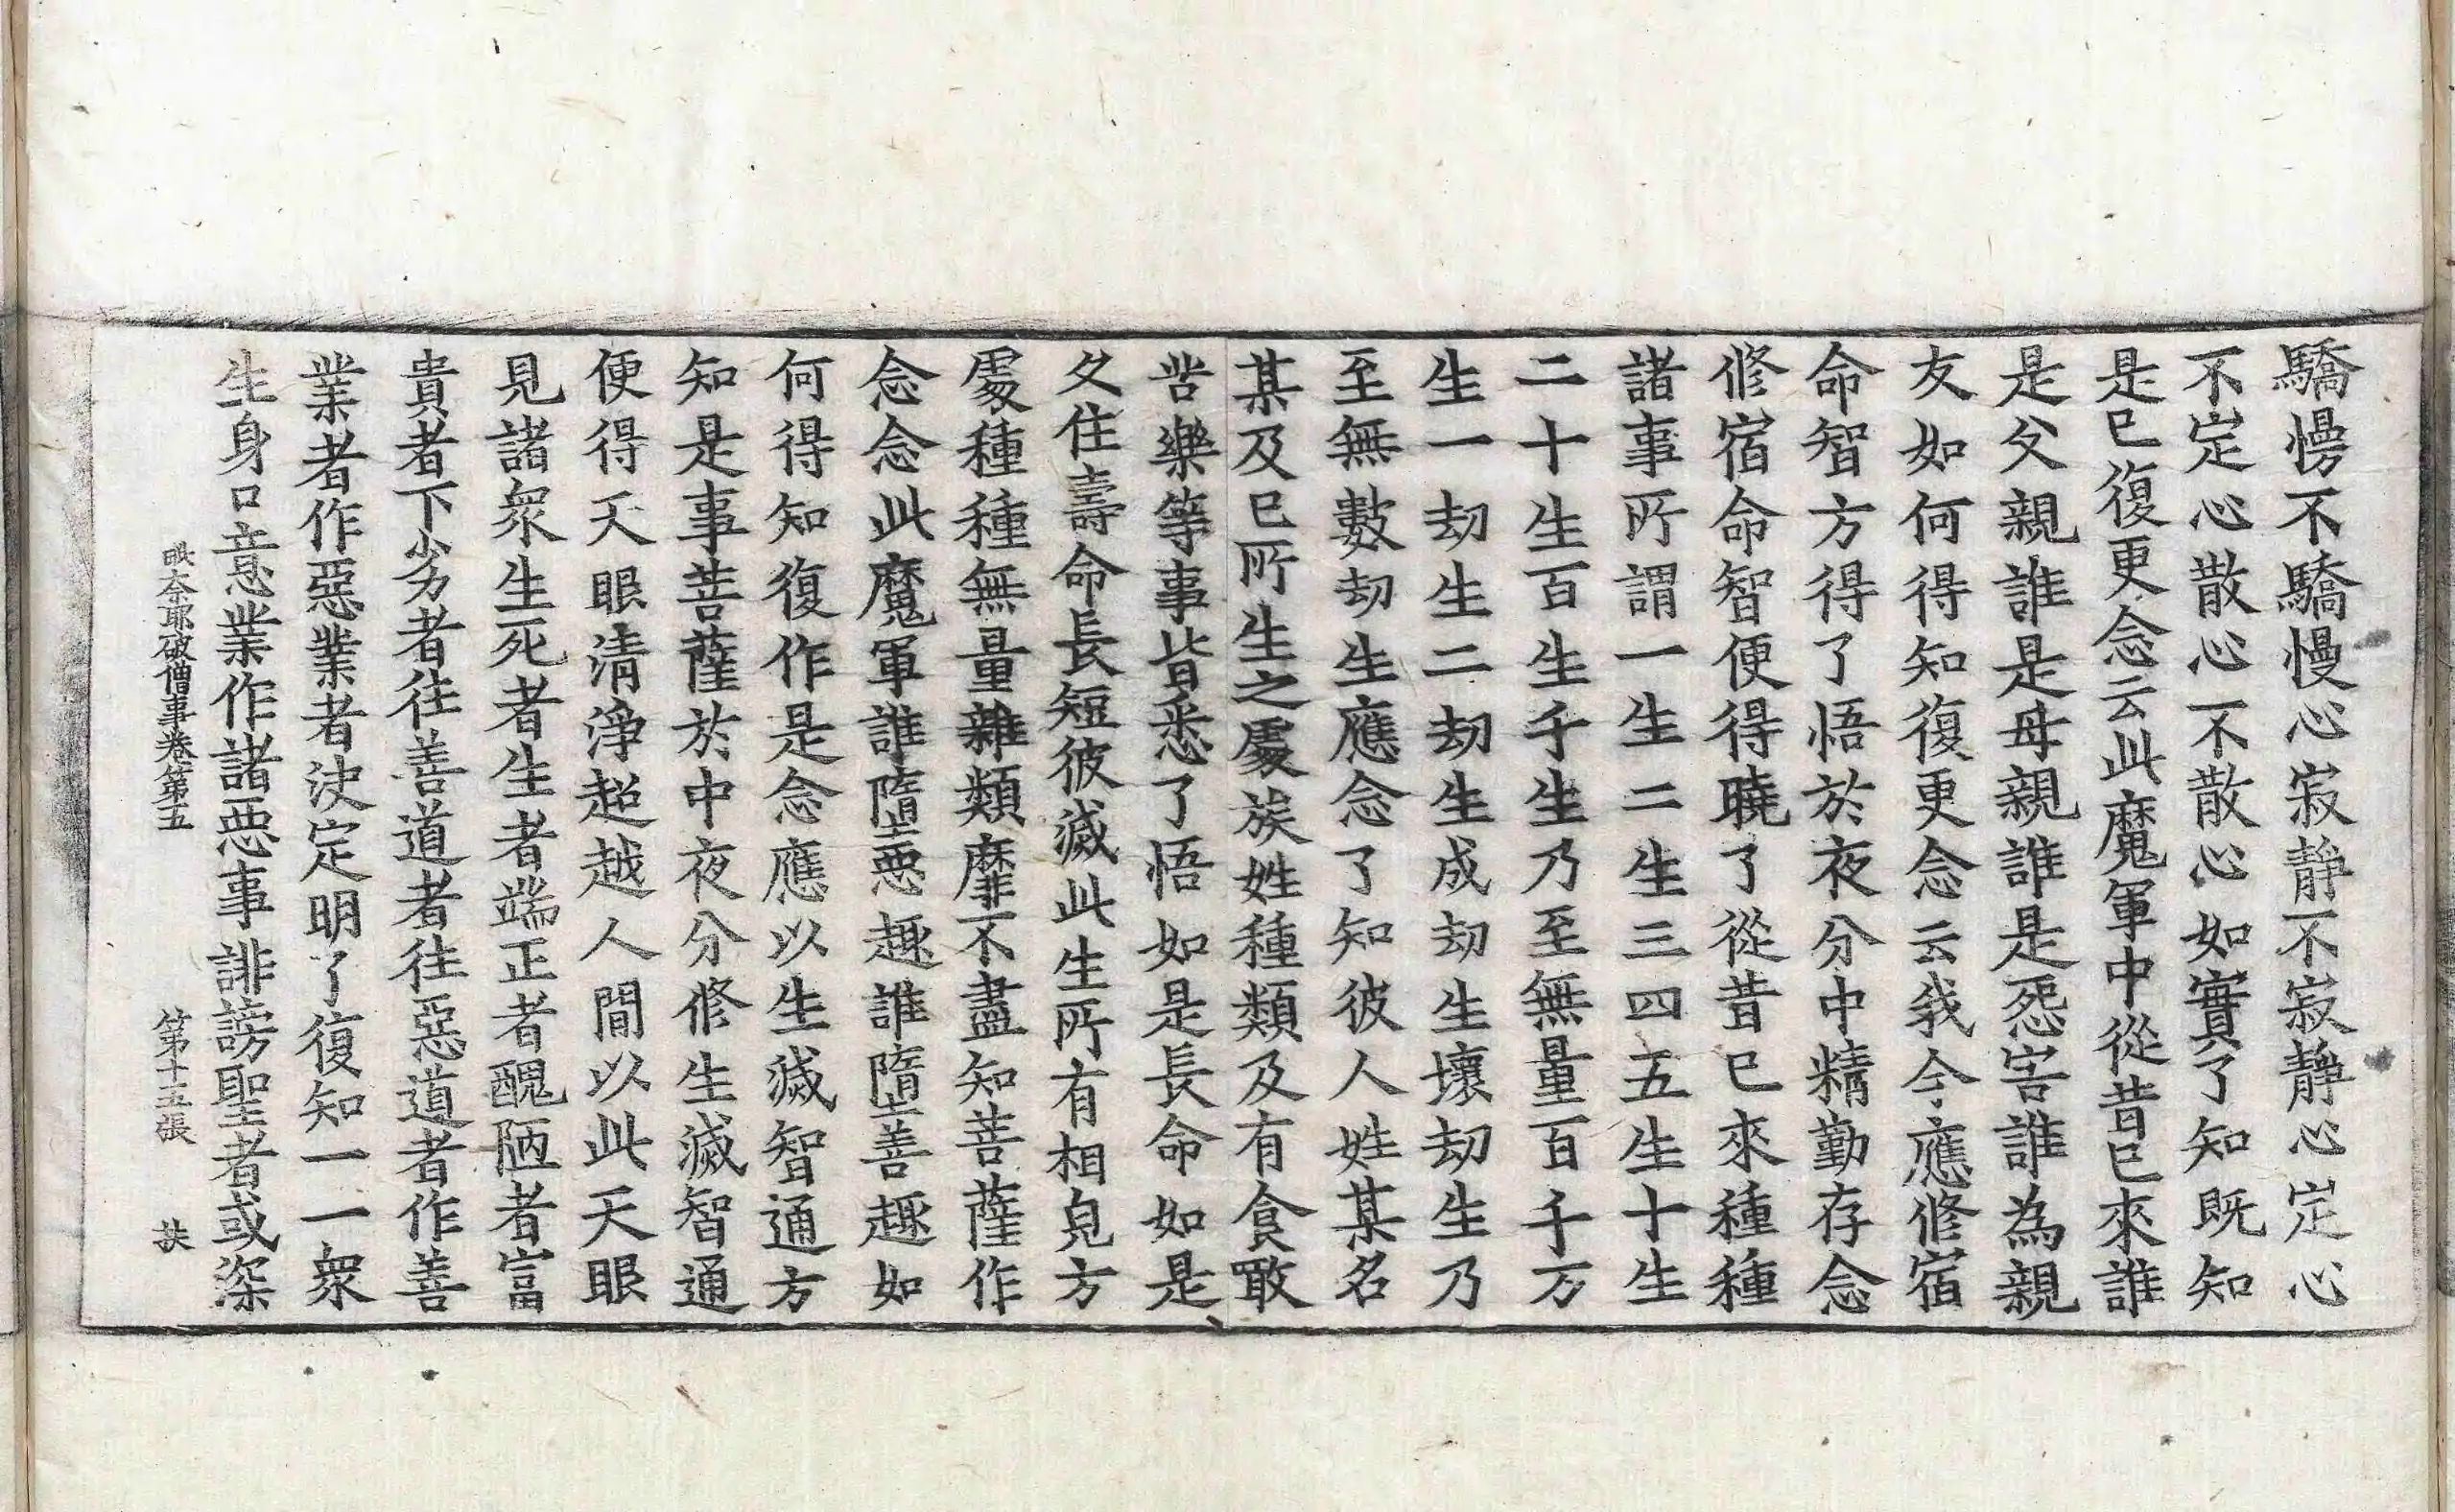 驕慢不驕慢心寂靜不寂靜心定心
不定心散心不散心如實了知既知
是已復更念云此魔軍中從昔已來誰
是父親誰是母親誰是怨害誰為親
友如何得知復更念云我今應修宿
命智方得了悟於夜分中精勤存念
修宿命智便得曉了從昔已來種種
諸事所謂一生二生三四五生十生
二十生百生千生乃至無量百千万
生一劫生二劫生成劫生壞劫生乃
至無數劫生應念了知彼人姓某名
某及已所生之處族姓種類及有食噉
苦樂等事皆悉了悟如是長命如是
久住壽命長短彼滅此生所有相皃方
處種種無量雜類靡不盡知菩薩作
念念此魔軍誰墮惡趣誰墮善趣如
何得知復作是念應以生滅智通方
知是事菩薩於中夜分修生滅智通
便得天眼清淨超越人間以此天眼
見諸衆生死者生者端正者醜陋者富
貴者下劣者往善道者往惡道者作善
業者作惡業者決定明了復知一一衆
生身口意業作諸惡事誹謗聖者或深
毗奈耶破僧事卷第五 第十五張 扶